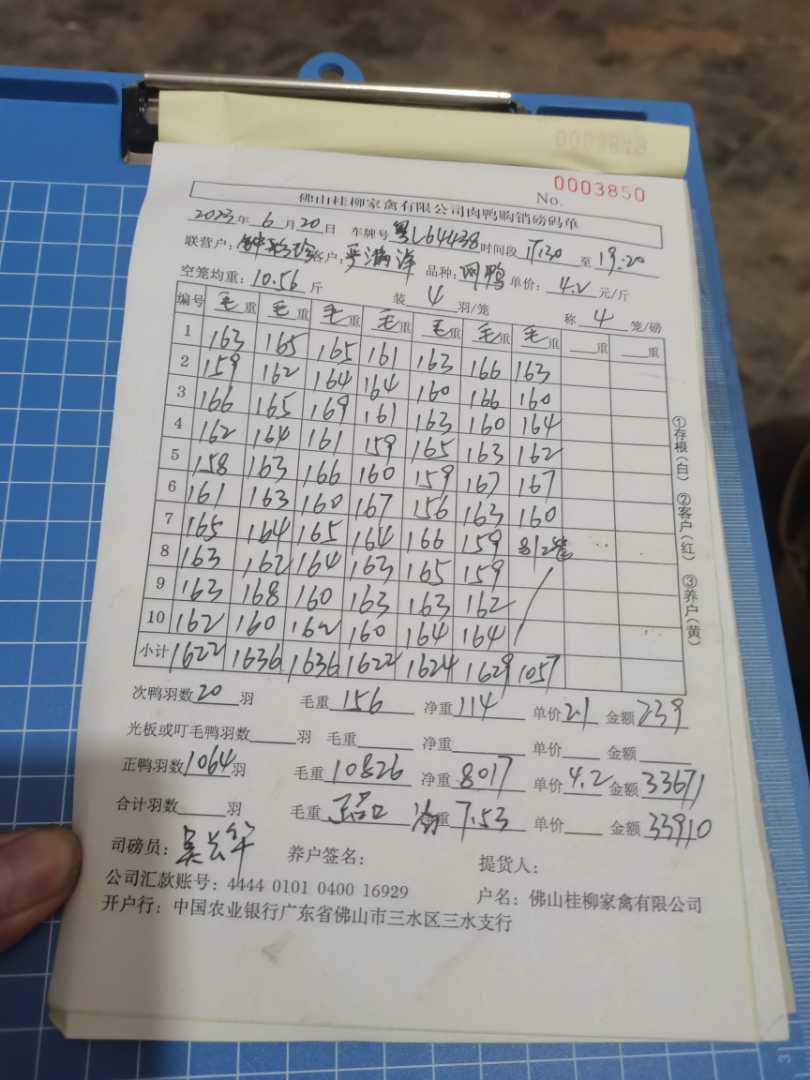 0003850
No.
佛山桂柳家禽有限公司肉鸭购销磅码单
2023年 6 月 20 日 车牌号 粤L64438 时间段 17:30 至 19:20
联营户: 客户: 严满洋 品种: 网鸭 单价: 4.2 元/斤
空笼均重: 10.56 斤 装 4 羽/笼 称 4 笼/磅
编号 毛重 毛重 毛重 毛重 毛重 毛重 毛重 重 重
1 163 165 165 161 163 166 163
2 159 162 164 164 160 166 160
3 166 165 169 161 163 160 164
4 162 164 161 159 165 163 162
5 158 163 166 160 159 167 167
6 161 163 160 167 156 163 160
7 165 164 165 164 166 159 81 2笼
8 163 162 164 163 165 159
9 163 168 160 163 163 162
10 162 160 162 160 164 164
小计 1622 1636 1636 1622 1624 1629 1057
次鸭羽数 20 羽 毛重 156 净重 114 单价 2.1 金额 239
光板或叮毛鸭羽数 羽 毛重 净重 单价 金额
正鸭羽数 1064 羽 毛重 10826 净重 8017 单价 4.2 金额 33671
合计羽数 羽 毛重 重 7.53 单价 金额 33910
司磅员: 养户签名: 提货人:
公司汇款账号: 4444 0101 0400 16929 户名: 佛山桂柳家禽有限公司
开户行: 中国农业银行广东省佛山市三水区三水支行
①存根(白) ②客户(红) ③养户(黄)